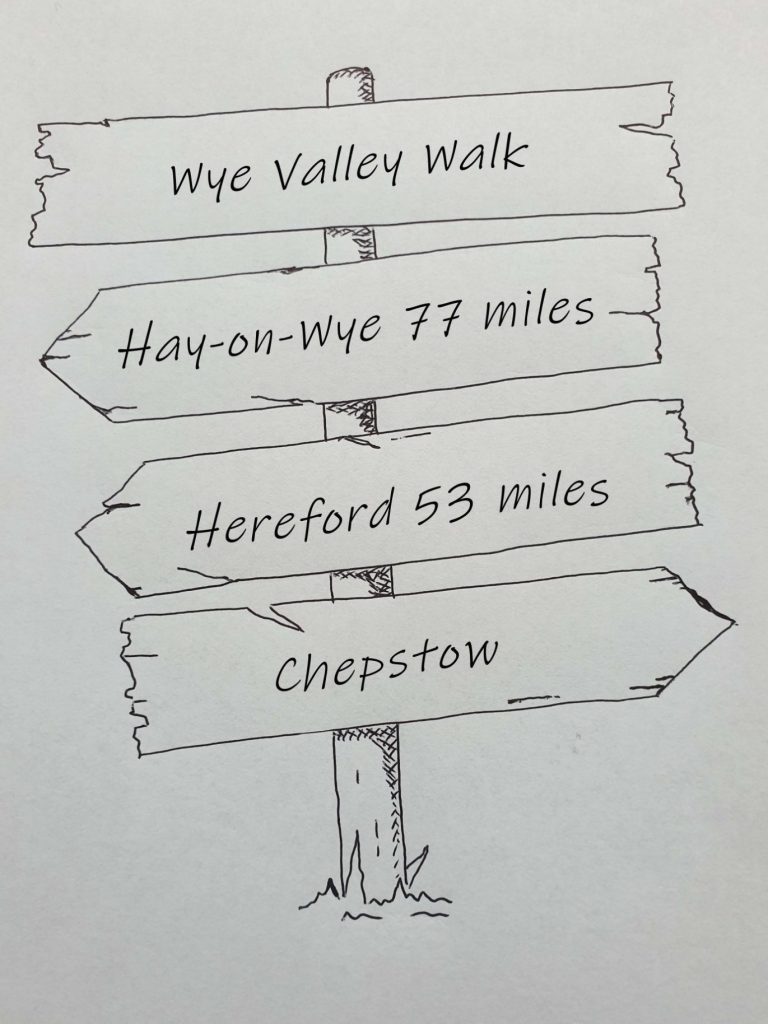 Wye Valley Walk
Hay-on-Wye 77 miles
Hereford 53 miles
Chepstow